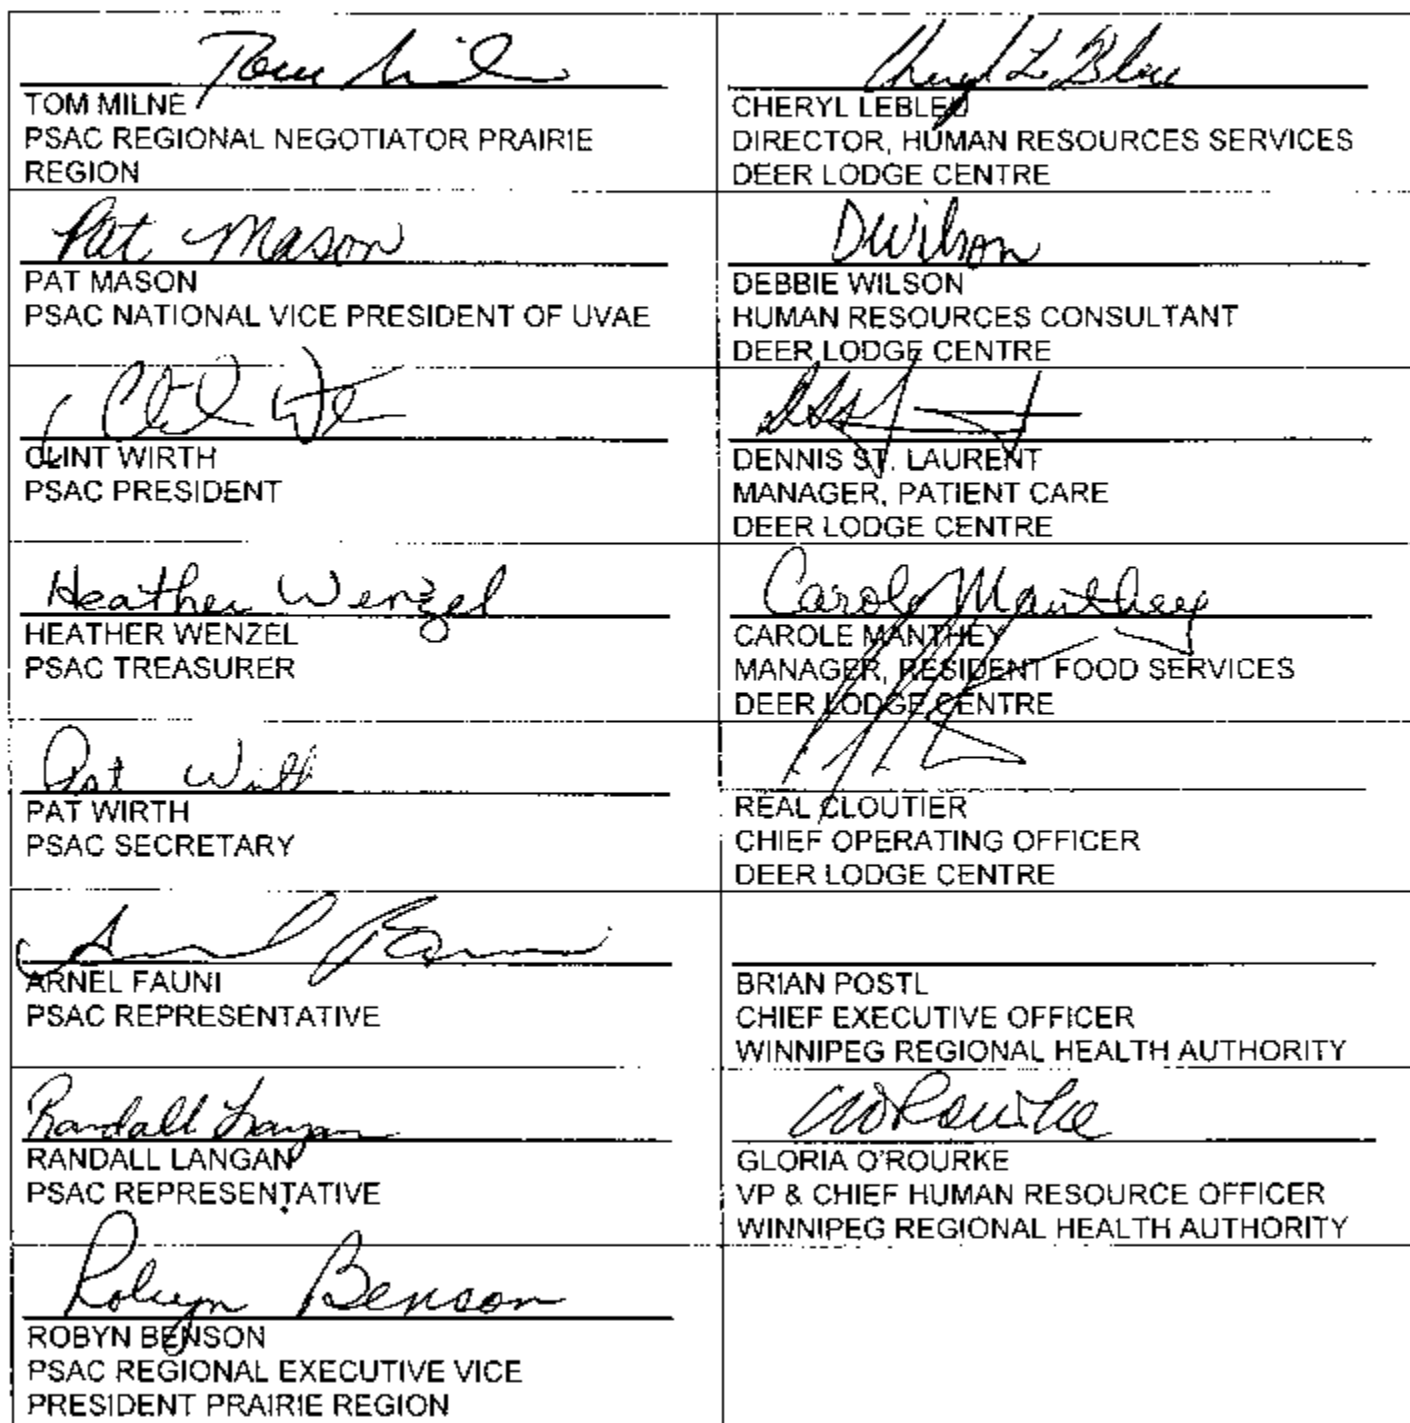 Tom Mil
TOM MILNE
PSAC REGIONAL NEGOTIATOR PRAIRIE
REGION
Cheryl L Bleu
CHERYL LEBLEU
DIRECTOR, HUMAN RESOURCES SERVICES
DEER LODGE CENTRE
Pat Mason
PAT MASON
PSAC NATIONAL VICE PRESIDENT OF UVAE
DWilson
DEBBIE WILSON
HUMAN RESOURCES CONSULTANT
DEER LODGE CENTRE
CLINT WIRTH
PSAC PRESIDENT
DENNIS ST. LAURENT
MANAGER, PATIENT CARE
DEER LODGE CENTRE
Heather Wenzel
HEATHER WENZEL
PSAC TREASURER
Carole Manthey
CAROLE MANTHEY
MANAGER, RESIDENT FOOD SERVICES
DEER LODGE CENTRE
Pat Wirth
PAT WIRTH
PSAC SECRETARY
REAL CLOUTIER
CHIEF OPERATING OFFICER
DEER LODGE CENTRE
ARNEL FAUNI
PSAC REPRESENTATIVE
BRIAN POSTL
CHIEF EXECUTIVE OFFICER
WINNIPEG REGIONAL HEALTH AUTHORITY
Randall Langan
RANDALL LANGAN
PSAC REPRESENTATIVE
GLORIA O'ROURKE
VP & CHIEF HUMAN RESOURCE OFFICER
WINNIPEG REGIONAL HEALTH AUTHORITY
Robyn Benson
ROBYN BENSON
PSAC REGIONAL EXECUTIVE VICE
PRESIDENT PRAIRIE REGION